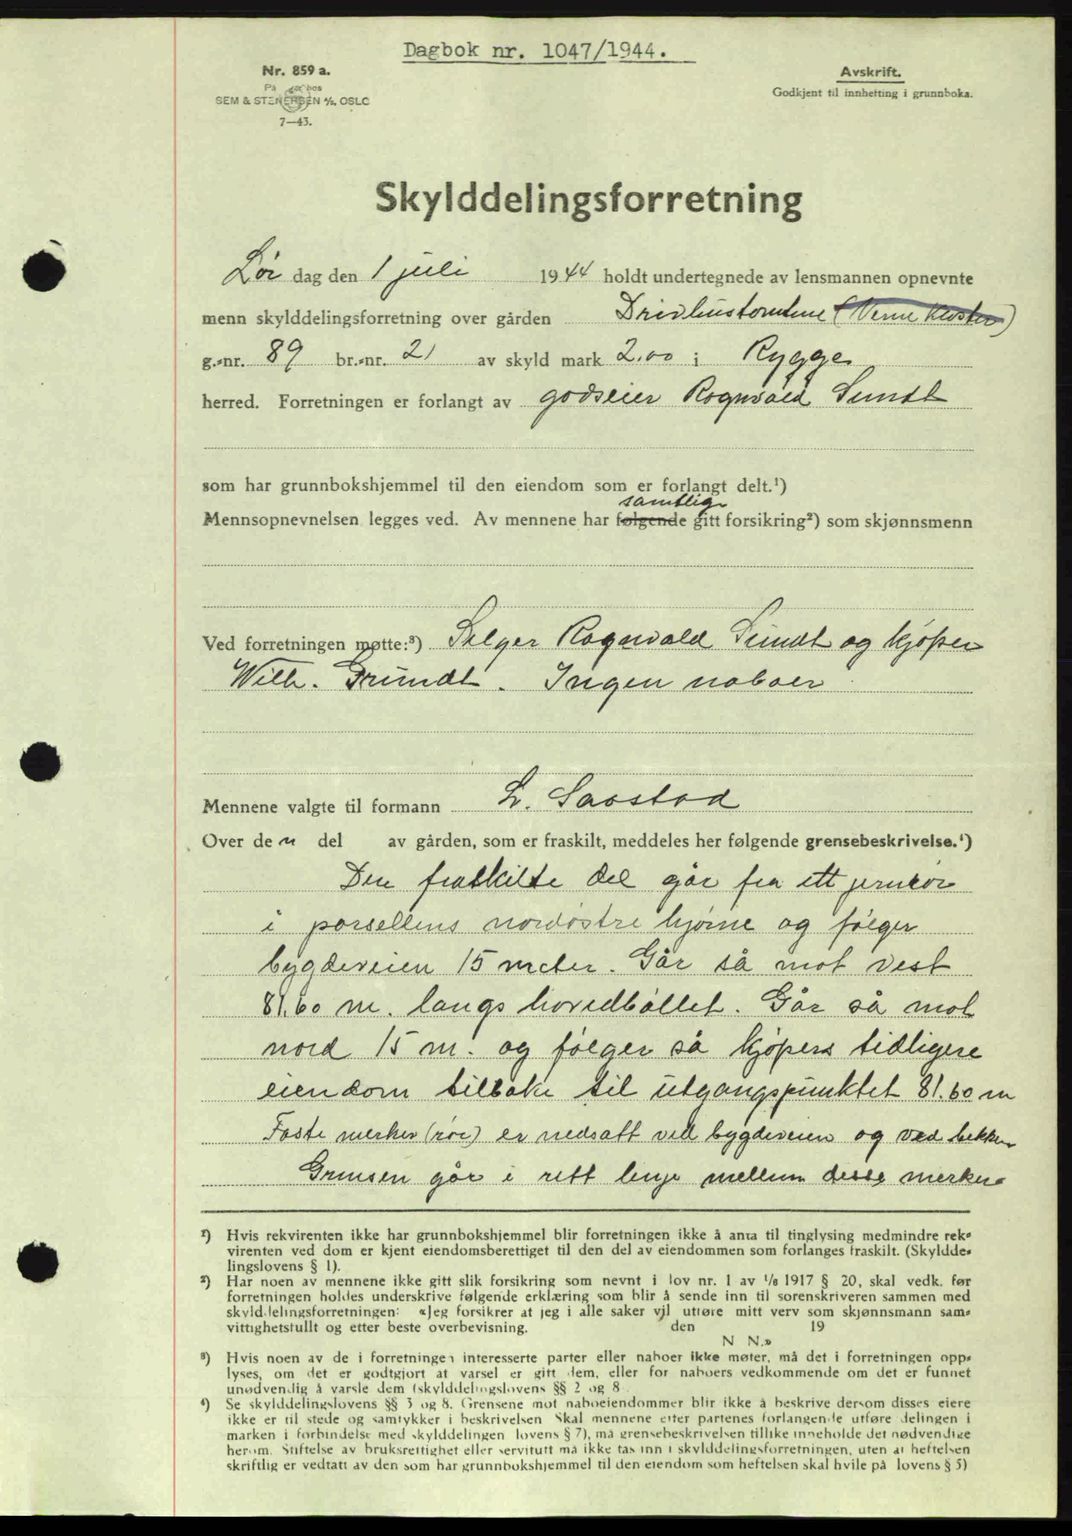 Dagbok nr. 1047/1944.
Nr. 859 a.
SEM & STENERSEN A/S, OSLO
7—43.
Avskrift.
Godkjent til innhefting i grunnboka.
Skylddelingsforretning
Lør dag den 1 juli 1944 holdt undertegnede av lensmannen opnevnte
menn skylddelingsforretning over gården Drivhustomtene (Verne Kloster)
g.-nr. 89 br.-nr. 21 av skyld mark 2.00 i Rygge
herred. Forretningen er forlangt av godseier Rognvald Sundt
som har grunnbokshjemmel til den eiendom som er forlangt delt.¹)
samtlige
Mennsopnevnelsen legges ved. Av mennene har følgende gitt forsikring²) som skjønnsmenn
Ved forretningen møtte:³) Selger Rognvald Sundt og kjøper
Wilh. Grundt. Ingen naboer
Mennene valgte til formann L. Saastad
Over de n del av gården, som er fraskilt, meddeles her følgende grensebeskrivelse.⁴)
Den fraskilte del går fra ett jernrør
i parsellens nordøstre hjørne og følger
bygdeveien 15 meter. Går så mot vest
81.60 m. langs hovedbøllet. Går så mot
nord 15 m. og følger så kjøpers tidligere
eiendom tilbake til utgangspunktet 81.60 m
Faste merker (rør) er nedsatt ved bygdeveien og ved bekken
Grensen går i rett linje mellem disse merker
¹) Hvis rekvirenten ikke har grunnbokshjemmel blir forretningen ikke å anta til tinglysing medmindre rek-
virenten ved dom er kjent eiendomsberettiget til den del av eiendommen som forlanges fraskilt. (Skyldde-
lingslovens § 1).
²) Har noen av mennene ikke gitt slik forsikring som nevnt i lov nr. 1 av 1/8 1917 § 20, skal vedk. før
forretningen holdes underskrive følgende erklæring som blir å sende inn til sorenskriveren sammen med
skylddelingsforretningen: «Jeg forsikrer at jeg i alle saker vil utføre mitt verv som skjønnsmann sam-
vittighetsfullt og etter beste overbevisning. den 19
N N.»
³) Hvis noen av de i forretningen interesserte parter eller naboer ikke møter, må det i forretningen opp-
lyses, om det er godtgjort at varsel er gitt dem, eller for naboers vedkommende om det er funnet
unødvendig å varsle dem (skylddelingslovens §§ 2 og 8
⁴) Se skylddelingslovens §§ 3 og 8. Grensene mot naboeiendommer blir ikke å beskrive dersom disses eiere
ikke er til stede og samtykker i beskrivelsen Skal mennene etter partenes forlangende utføre delingen i
marken i forbindelse med skylddelingen lovens § 7), må grensebeskrivelsen tillike inneholde det nødvendige
herom. Stiftelse av bruksrettighet eller servitutt må ikke tas inn i skylddelingsforretningen, uten at heftelsen
skriftlig er vedtatt av den som har grunnbokshjemmel til den eiendom som heftelsen skal hvile på lovens § 5)